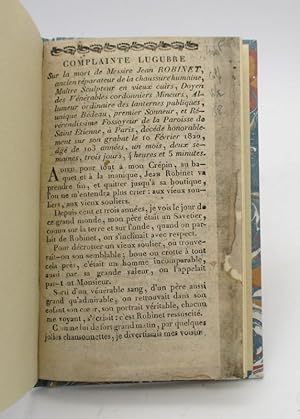 COMPLAINTE LUGUBRE
Sur la mort de Messire Jean ROBINET,
ancien réparateur de la chaussure humaine,
Maître Sculpteur en vieux cuirs, Doyen
des Vénérables cordonniers Mineurs, Al-
lumeur ordinaire des lanternes publiques,
unique Bédeau, premier Sonneur, et Ré-
vérendissime Fossoyeur de la Paroisse de
Saint Etienne, à Paris, décédé honorable-
ment sur son grabat le 10 Février 1820,
âgé de 103 années, un mois, deux se-
maines, trois jours, 4 heures et 5 minutes.
pour tout à mon Crépin, au ba-
quet et à la manique, Jean Robinet va
prendre fin, et quitter jusqu'à sa boutique,
l'on ne m'entendra plus crier : aux vieux sou-
liers, aux vieux souliers.
Depuis cent et trois années, je vois le jour de
ce grand monde, mon père était un Savetier,
connu sur la terre et sur l'onde, quand on par-
lait de Robinet, on s'inclinait avec respect.
Pour décrotter un vieux soulier, où trouve-
rait-on son semblable ; boue ou crotte à tout
cela près, c'était un homme incomparable,
aussi par sa grande valeur, on l'appelait
par-tout Monsieur.
Sorti d'un vénérable sang, d'un père aussi
grand qu'admirable, on retrouvait dans son
enfant son cœur, son portrait véritable, chacun
me voyant, s'criait : c'est Robinet ressuscité.
Comme lui de fort grand matin, par quelques
jolies chansonnettes, je divertissais mes voisins